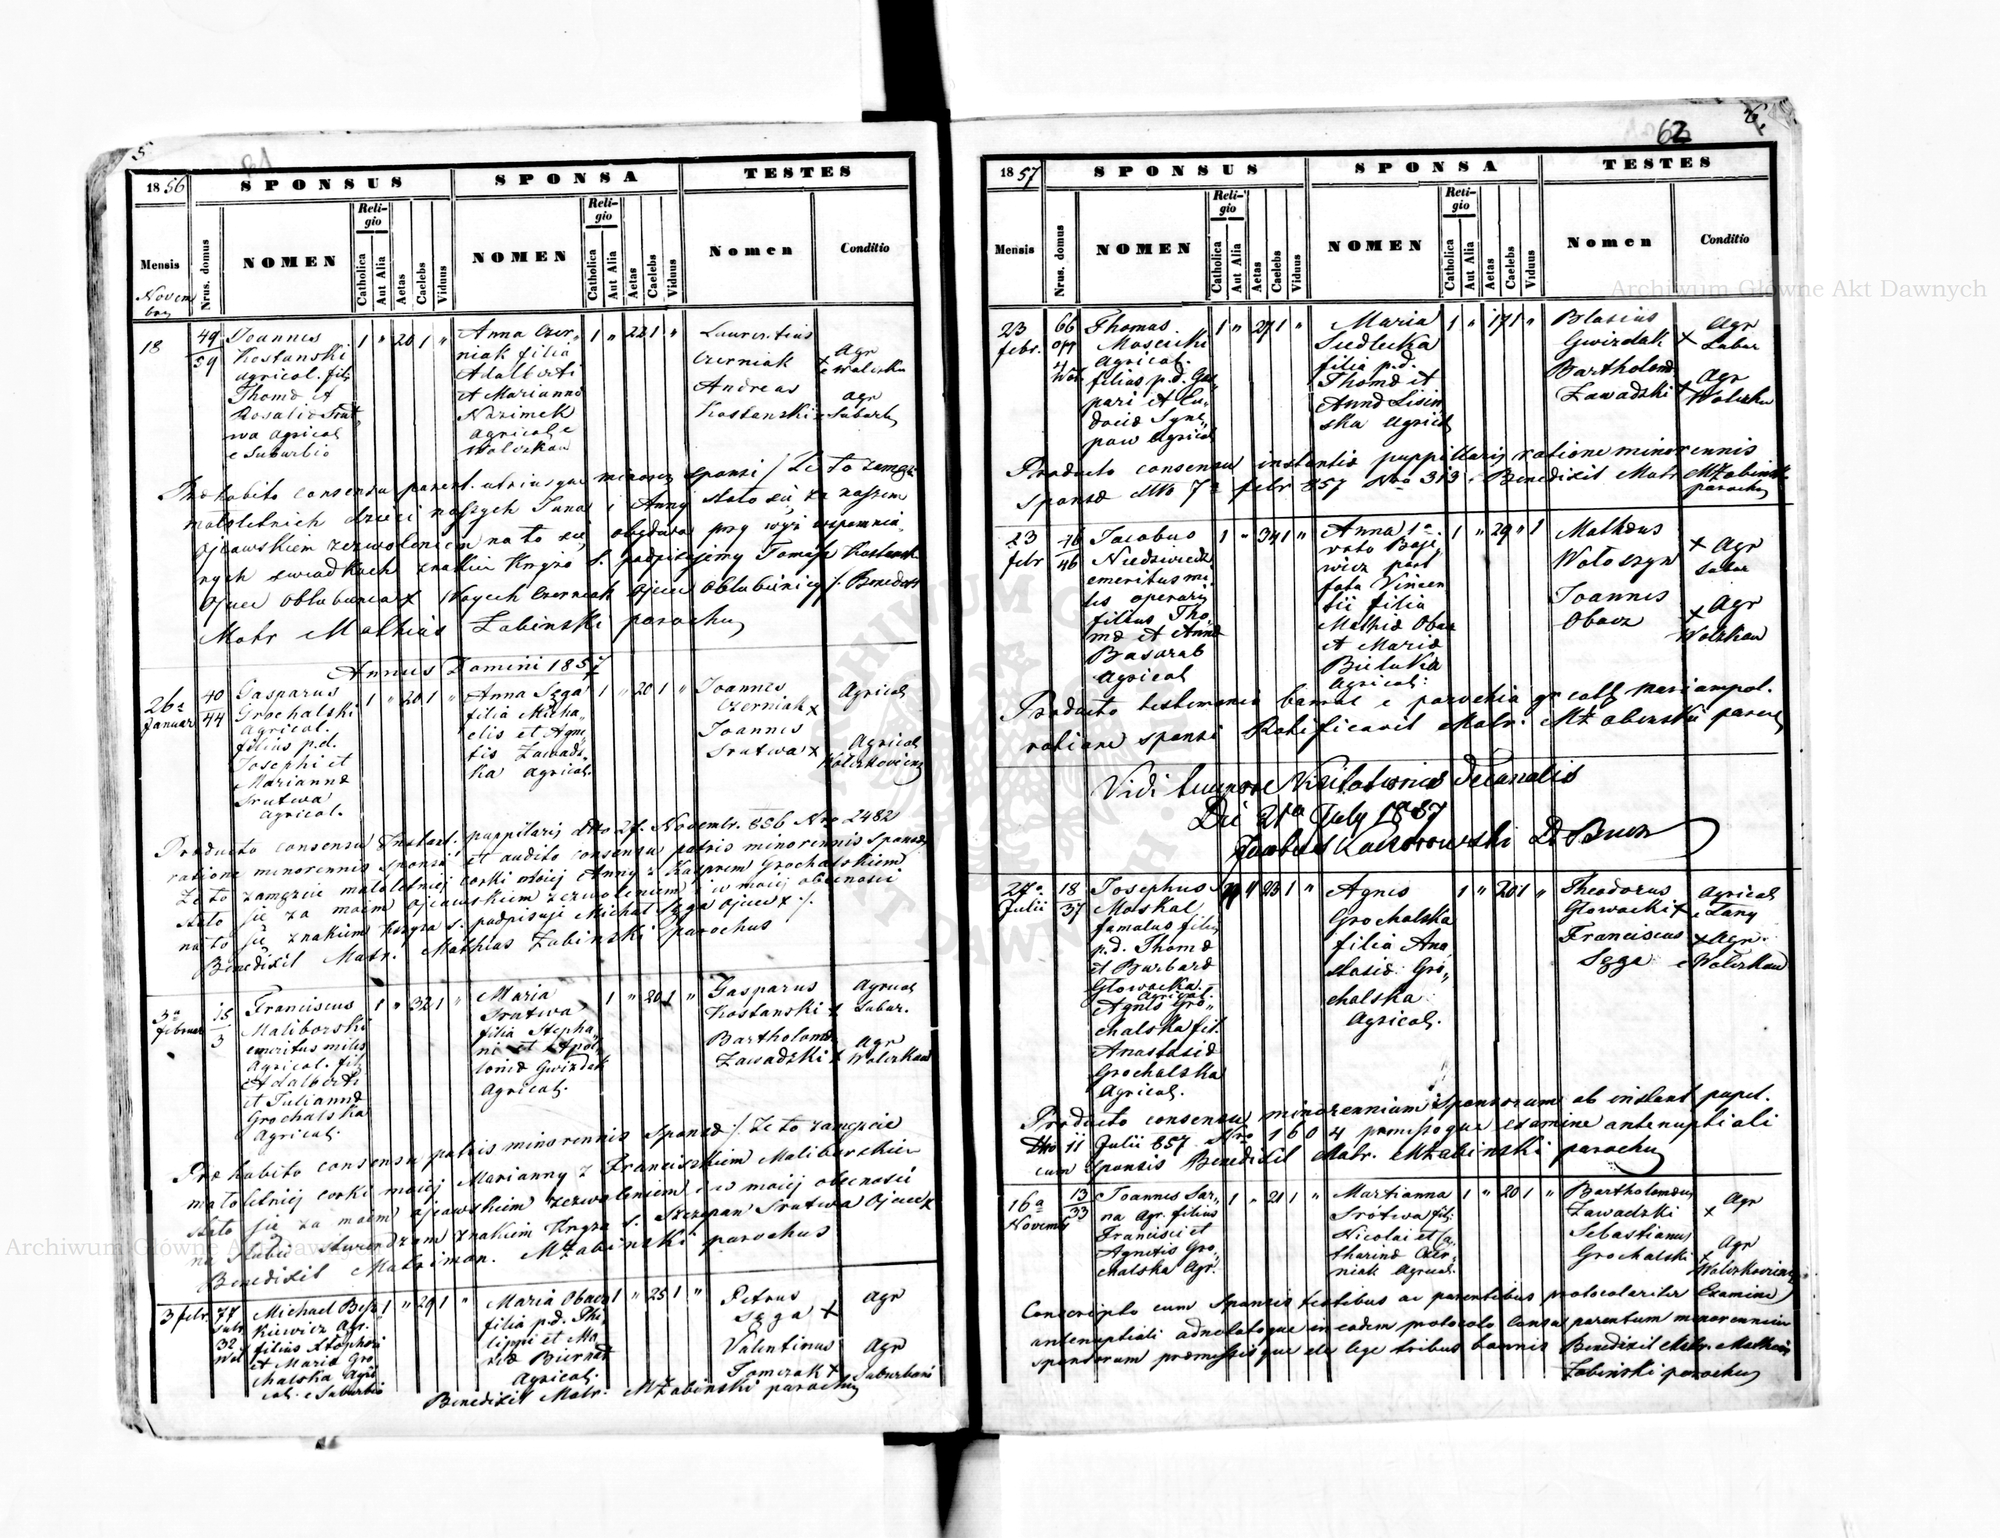 5
1856
SPONSUS
SPONSA
TESTES
Mensis
Novem
bris
Nrus. domus
NOMEN
Religio
Catholica
Aut Alia
Aetas
Caelebs
Viduus
NOMEN
Religio
Catholica
Aut Alia
Aetas
Caelebs
Viduus
Nomen
Conditio
18
49
59
Joannes
Kostanski
agricol. fil.
Thomæ et
Rosaliæ Srut
wa agricol
e Suburbio
1 " 20 1 "
Anna Czer
niak filia
Adalberti
et Mariannæ
Nazimek
agricol e
Wolczkow
1 " 22 1 "
Laurentius
Czerniak
Andreas
Kostanski
Agr
e Wolczko
agr
Suburb
małoletnich dzieci naszych Jana i Anny stało się za naszem
Ojcowskiem zezwoleniem na to się obydwa przy wyż wspomnia
nych swiadkach znakiem Krzyża S. podpisujemy Tomasz Kostanski
Ojciec Oblubienca + Woyciech Czerniak Ojciec Oblubienicy /. Benedixit
Matr Mathias Żabinski parochus
Annus Domini 1857
26a
Januar
40
44
Gasparus
Grochalski
Agricol.
filius p.d.
Josephi et
Mariannæ
Srutwa
agricol.
1 " 20 1 "
Anna Sęga
filia Micha
elis et Agne
tis Zawadz
ka agricol.
1 " 20 1 "
Joannes
Czerniak +
Joannes
Srutwa +
Agricol
Agricol
Producto consensu Instant. puppilaris dto 27. Novembr. 856 Nro 2482
ratione minorennis sponsi et audito consensu patris minorennis sponsæ
Że to zamęzcie małoletniej corki mojej Anny z Kasprem Grochalskiem
stało się za moim ojcowskiem zezwoleniem i w mojej obecnosci
na to się znakiem krzyża S. podpisuje Michał Sęga ojciec + /.
Benedixit Matr. Mathias Żabinski parochus
3a
februar
15
3
Franciscus
Maliborski
emeritus miles
Agricol. fil.
Adalberti
et Juliannæ
Grochalska
Agricol.
1 " 32 1 "
Maria
Srutwa
filia Stepha
ni et Apol
loniæ Gwizdak
Agricol.
1 " 20 1 "
Gasparus
Kostanski +
Bartholomæ
Zawadzki +
Agricol
Subur.
Agr
Wolczkow
Præhabito consensu patris minorennis sponsæ /. Że to zamęzcie
małoletniej corki mojej Marianny z Franciszkiem Maliborskim
stało się za moim ojcowskiem zezwoleniem i w mojej obecnosci
znakiem Krzyza S. Szczepan Srutwa Ojciec +
Benedixit Matrimon. MŻabinski parochus
3 febr.
77
Sub
32
Wol
Michael Bess
kiewicz Agr.
filius Stephani
et Maria Gro
chalska Agri
col. e Suburbio
1 " 29 1 "
Maria Obacz
filia p.d. Phi
lippi et Ma
riæ Biernat
Agricol.
1 " 25 1 "
Petrus
Sęga +
Valentinus
Tomczak +
Agr
Agr
Suburbani
Benedixit Matr. MŻabinski parochus
62
1857
SPONSUS
SPONSA
TESTES
Mensis
Nrus. domus
NOMEN
Religio
Catholica
Aut Alia
Aetas
Caelebs
Viduus
NOMEN
Religio
Catholica
Aut Alia
Aetas
Caelebs
Viduus
Nomen
Conditio
23
febr.
66
Thomas
Mosecki
Agricol.
filius p.d. Gas
pari et Lu
doviæ Syne
paw Agricol
1 " 27 1 "
Maria
Siedlecka
filia p.d.
Thomæ et
Annæ Lisin
ska Agricol
1 " 17 1 "
Blasius
Gwizdak
Bartholomæ
Zawadzki
Agr
+ Subur
Agr
+ Wolczko
Producto consensu instantiæ puppillaris ratione minorennis
sponsæ dto 7a febr 857 Nro 313. Benedixit Matr. MŻabinski
parochus
23
febr
46
46
Jacobus
Niedzwiedz
emeritus mi
les operar
filius Tho
mæ et Annæ
Basarab
Agricol
1 " 34 1 "
Anna 1o
voto Basi
wicz post
fata Vincen
tii filia
Mathiæ Obacz
et Mariæ
Bieluka
Agricol.
1 " 29 " 1
Mathæus
Wołoszyn
Joannes
Obacz
+ Agr
Subur
+ Agr
Wolczkow
Producto testimonio bannor e parochia gr. cath Mariampol.
ratione sponsi Ratificavit Matr. MŻabinski paroch
Vidi tempore Visitationis Decanalis
Die 21a July 1857
27a
Julii
18
37
Josephus
Moskal
famulus filius
p.d. Thomæ
et Barbaræ
Głowacka
Agricol.
Agnes Gro
chalska fil.
Anastasiæ
Grochalska
Agricol.
23 1 "
Agnes
Grochalska
filia Ana
stasiæ Gro
chalska
Agricol.
1 " 20 1 "
Theodorus
Głowacki +
Franciscus
Sęga
Agricol
e Łany
+ Agr.
e Wolczkow
Producto consensu minorennium sponsorum ab instant pupil.
dto 11 Julii 857 Nro 1604 præmissoque examine antenuptiali
cum sponsis Benedixit Matr. MŻabinski parochus
16a
Novemb
13
33
Joannes Sar
na Agr. filius
Francisci et
Agnetis Gro
chalska Agr.
1 " 21 1 "
Martianna
Srótwa fil.
Nicolai et Ca
tharinæ Czer
niak Agricol.
1 " 20 1 "
Bartholomæus
Zawadzki
Sebastianus
Grochalski
Agr
+
Agr
+
Conscripto cum sponsis testibus ac parentibus protocolariter Examine
antenuptiali adnotatoque in eodem protocolo consensu parentum minorennium
sponsorum præmissisque de lege tribus bannis Benedixit Matr. Mathias
Żabinski parochus
Archiwum Główne Akt Dawnych
Archiwum Główne Akt Dawnych